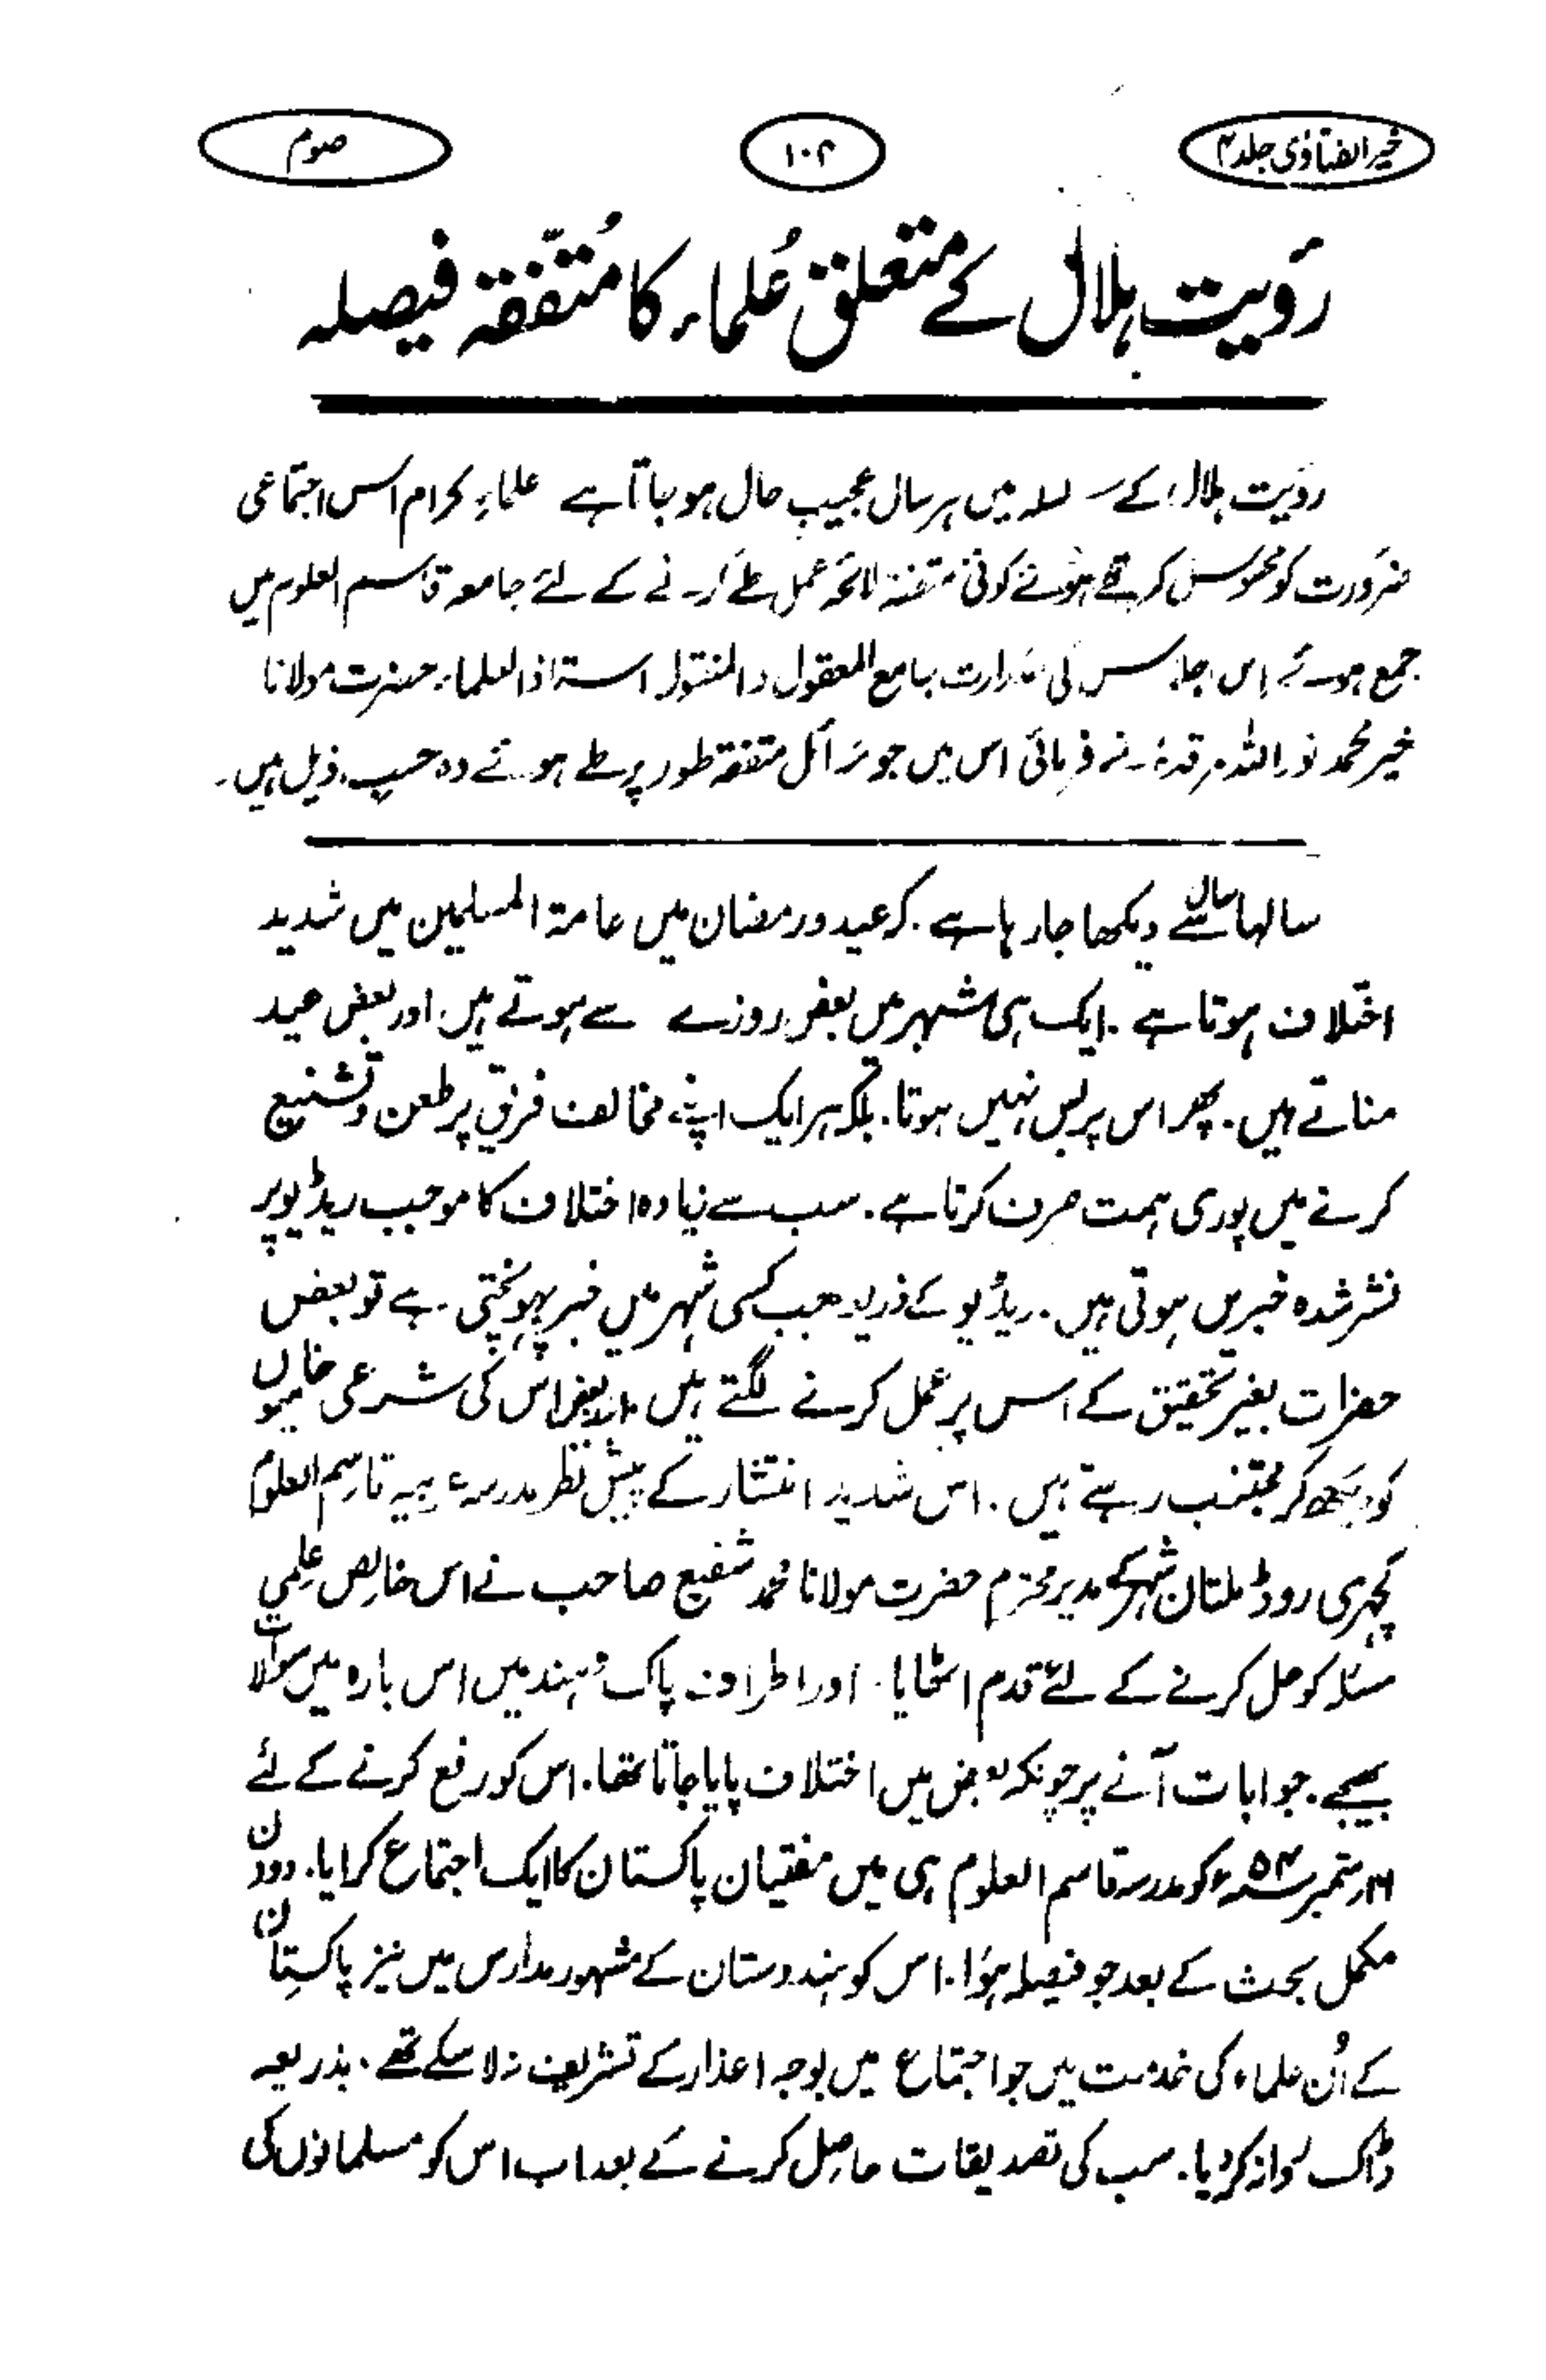 خیر الفتاویٰ جلد ۴
۱۰۲
صوم
رؤیت ہلال کے متعلق عُلماء کا مُتّفقہ فیصلہ
رؤیت ہلال کے سلسلہ میں ہر سال عجیب حال ہو جاتا ہے علماءِ کرام اس اجتماعی
ضرورت کو محسوس کرتے ہوئے کوئی متفقہ لائحہ عمل طے کرنے کے لئے جامعہ قاسم العلوم میں
جمع ہوئے اِس اجلاس کی صدارت جامع المعقول والمنقول استاذ العلماء حضرت مولانا
خیر محمد نور اللہ مرقدہٗ نے فرمائی اس میں جو مسائل متفقہ طور پر طے ہوئے وہ حسبِ ذیل ہیں۔
سالہا سال سے دیکھا جا رہا ہے۔ کہ عید و رمضان میں عامۃ المسلمین میں شدید
اختلاف ہوتا ہے۔ ایک ہی شہر میں بعض روزے سے ہوتے ہیں۔ اور بعض عید
مناتے ہیں۔ پھر اس پر بس نہیں ہوتا۔ بلکہ ہر ایک اپنے مخالف فریق پر طعن و تشنیع
کرنے میں پوری ہمت صرف کرتا ہے۔ سب سے زیادہ اختلاف کا موجب ریڈیو پر
نشر شدہ خبریں ہوتی ہیں۔ ریڈیو کے ذریعہ جب کسی شہر میں خبر پہونچتی ہے تو بعض
حضرات بغیر تحقیق کے اس پر عمل کرنے لگتے ہیں اور بعض اس کی شرعی خامیوں
کو دیکھ کر مجتنب رہتے ہیں۔ اس شدید انتشار کے پیش نظر مدرسہ عربیہ قاسم العلوم
کچہری روڈ ملتان شہر کے مدیر محترم حضرت مولانا محمد شفیع صاحب نے اس خالص عِلمی
مسئلہ کو حل کرنے کے لئے قدم اٹھایا۔ اور اطراف پاک و ہند میں اس بارہ میں سوالات
بھیجے۔ جوابات آنے پر چونکہ بعض میں اختلاف پایا جاتا تھا۔ اس کو رفع کرنے کے لئے
ستمبر ۵۴ء کو مدرسہ قاسم العلوم ہی میں مفتیان پاکستان کا ایک اجتماع کرایا۔ دو دن
مکمل بحث کے بعد جو فیصلہ ہؤا۔ اس کو ہندوستان کے مشہور مدارس میں نیز پاکستان
کے اُن علماء کی خدمت میں جو اجتماع میں بوجہ اعذار کے تشریف نہ لا سکے تھے۔ بذریعہ
ڈاک روانہ کر دیا۔ سب کی تصدیقات حاصل کرنے کے بعد اب اس کو مسلمانوں کی